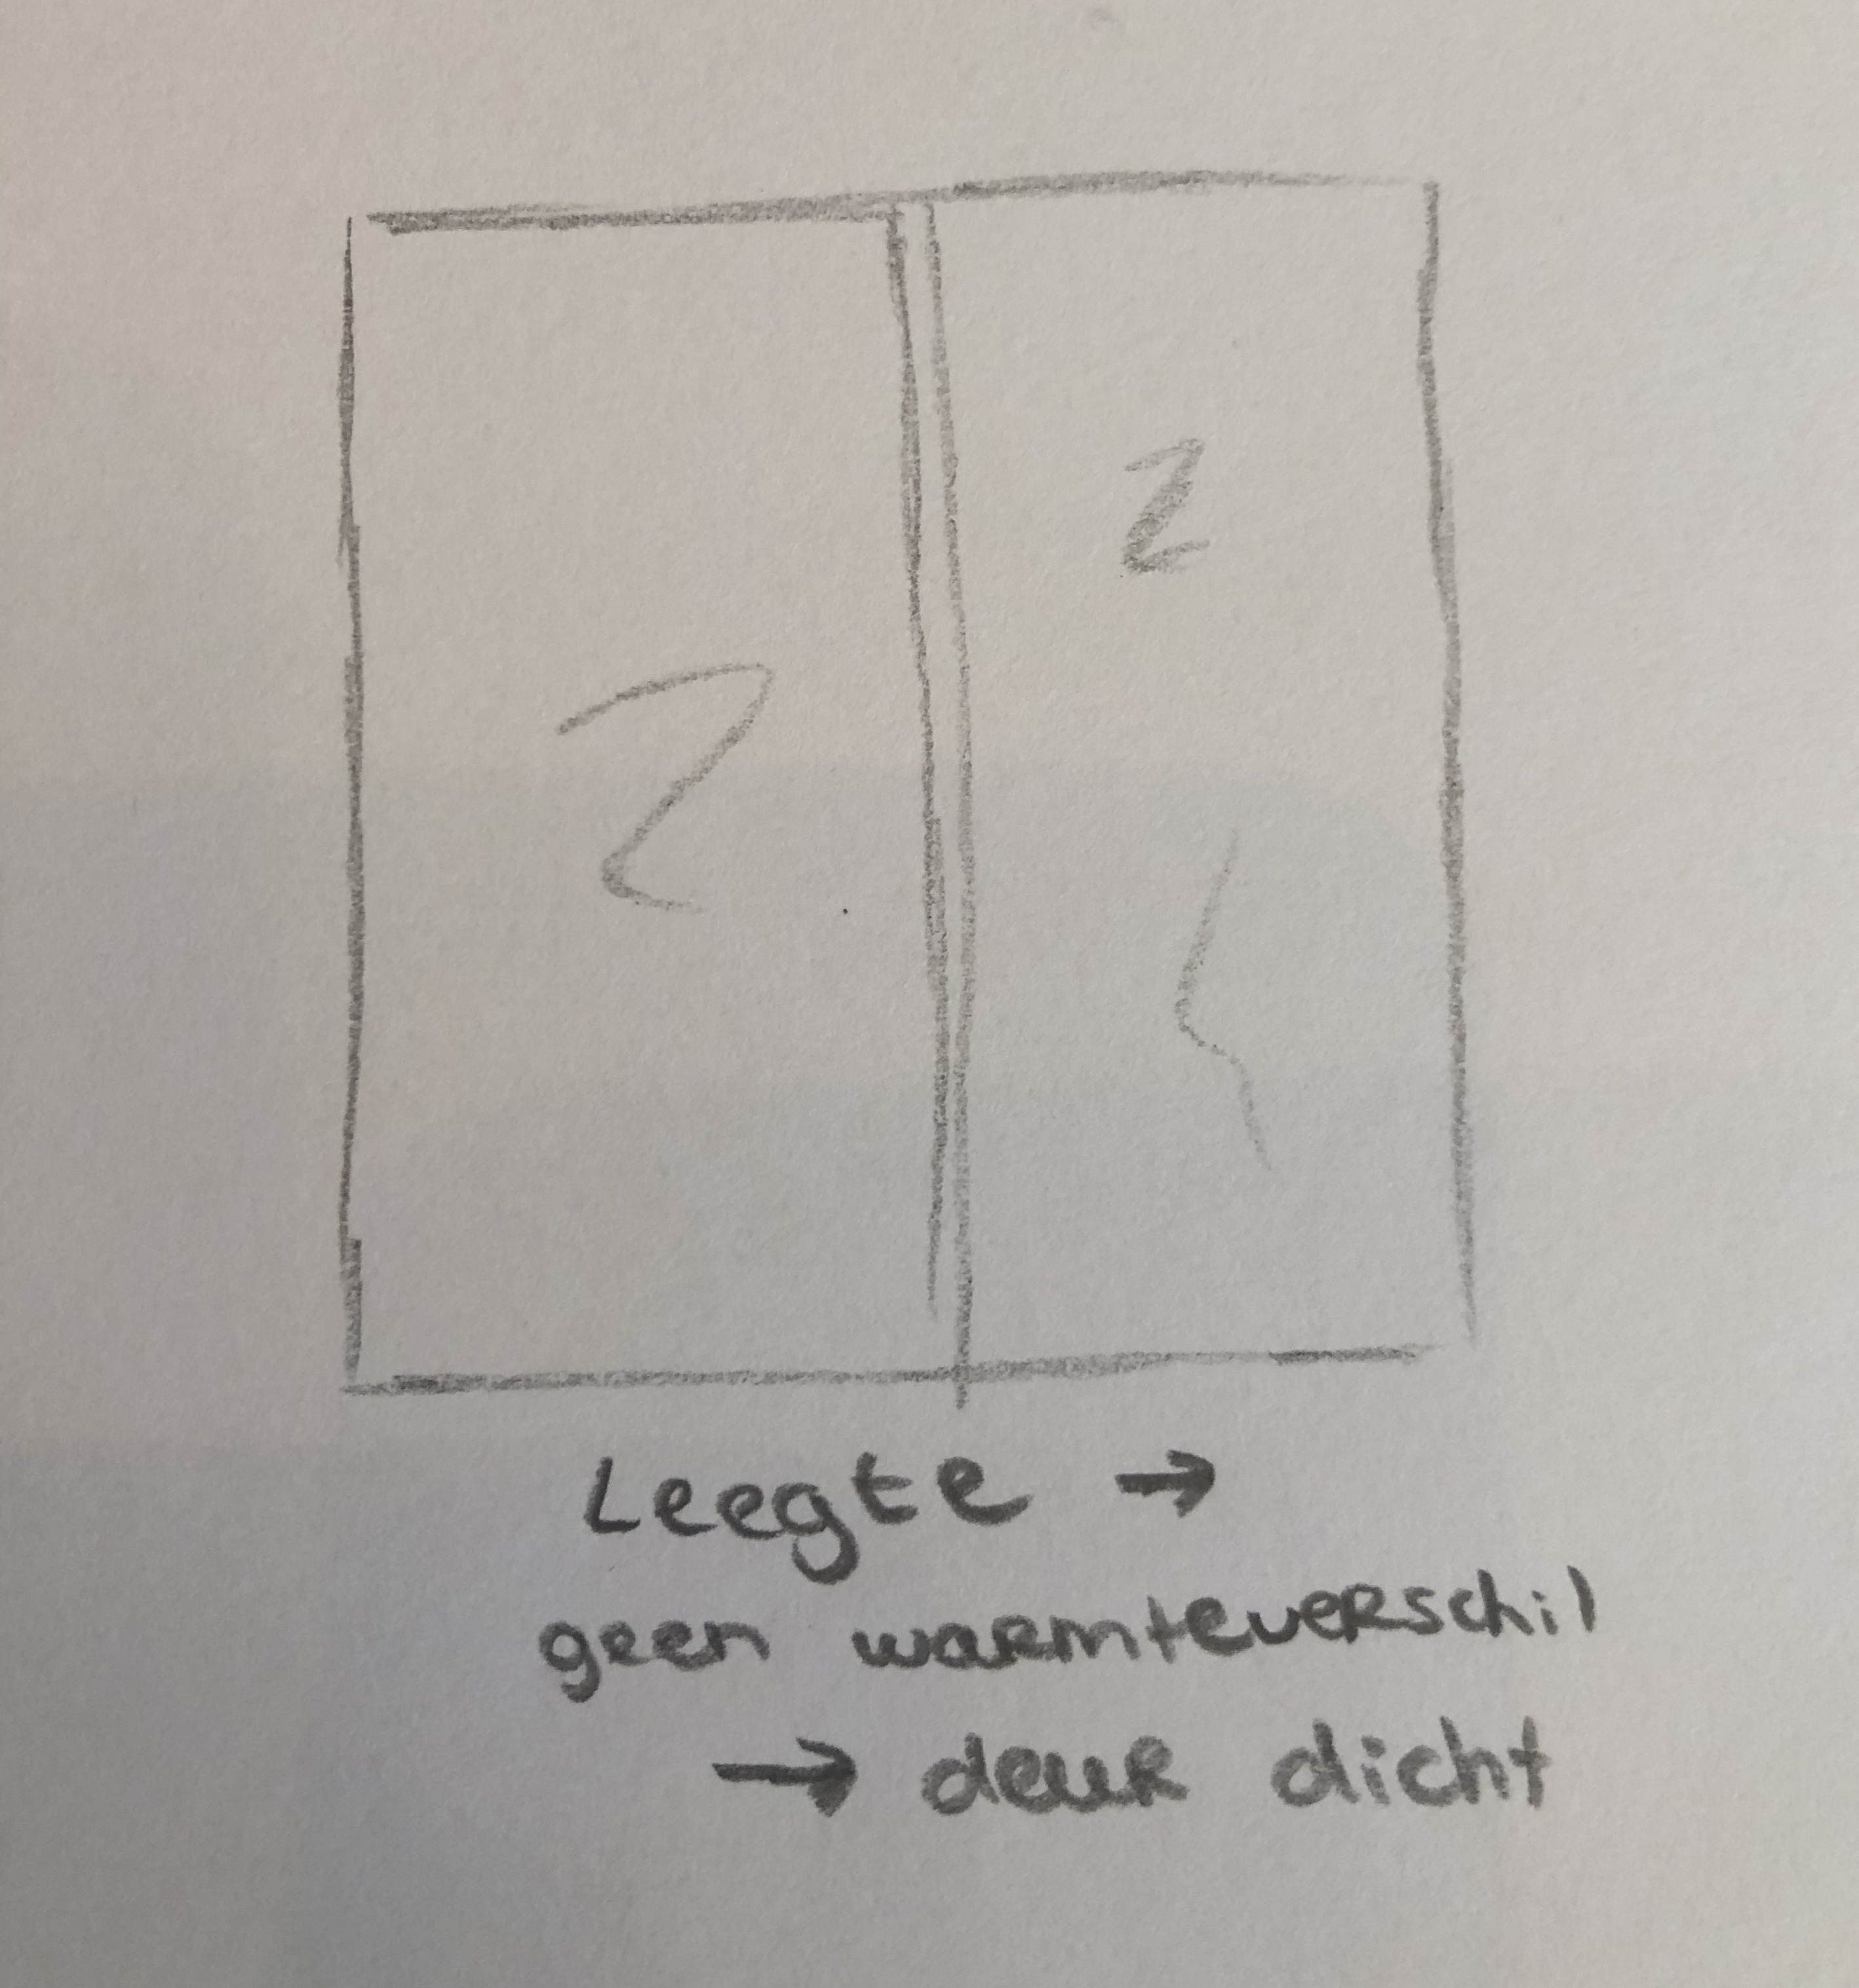 2
2
Leegte →
geen warmteverschil
→ deur dicht